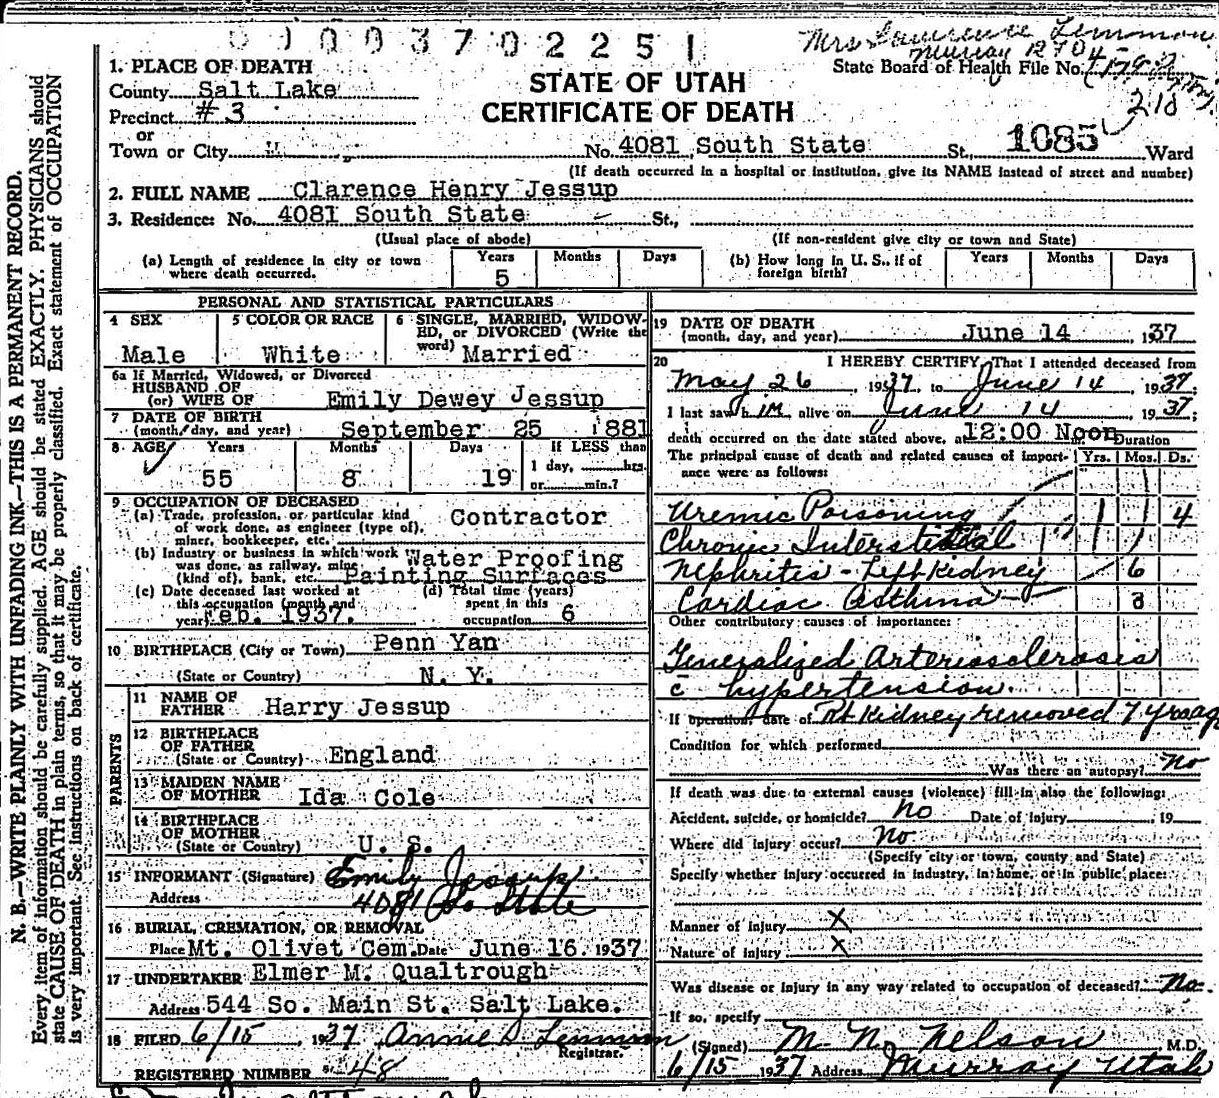 0 1 0 0 3 7 0 2 2 5 1
Mrs Lawrence Lemmon
Murray
1. PLACE OF DEATH
County Salt Lake
Precinct #3
or
Town or City
STATE OF UTAH
CERTIFICATE OF DEATH
State Board of Health File No.
218
1085
No. 4081 South State St., Ward
(If death occurred in a hospital or institution, give its NAME instead of street and number)
2. FULL NAME Clarence Henry Jessup
3. Residence: No. 4081 South State St.,
(Usual place of abode) (If non-resident give city or town and State)
(a) Length of residence in city or town where death occurred. Years 5 Months Days
(b) How long in U. S., if of foreign birth? Years Months Days
PERSONAL AND STATISTICAL PARTICULARS
4 SEX Male
5 COLOR OR RACE White
6 SINGLE, MARRIED, WIDOWED, or DIVORCED (Write the word) Married
6a If Married, Widowed, or Divorced
HUSBAND OF
(or) WIFE OF Emily Dewey Jessup
7 DATE OF BIRTH
(month, day, and year) September 25 1881
8 AGE Years Months Days If LESS than
55 8 19 1 day, hrs.
or min.?
9 OCCUPATION OF DECEASED
(a) Trade, profession, or particular kind of work done, as engineer (type of), miner, bookkeeper, etc. Contractor
(b) Industry or business in which work was done, as railway, mine (kind of), bank, etc. Water Proofing Painting Surfaces
(c) Date deceased last worked at this occupation (month and year) Feb. 1937.
(d) Total time (years) spent in this occupation 6
10 BIRTHPLACE (City or Town) Penn Yan
(State or Country) N. Y.
PARENTS
11 NAME OF FATHER Harry Jessup
12 BIRTHPLACE OF FATHER
(State or Country) England
13 MAIDEN NAME OF MOTHER Ida Cole
14 BIRTHPLACE OF MOTHER
(State or Country) U. S.
15 INFORMANT (Signature) Emily Jessup
Address 4081 So State
16 BURIAL, CREMATION, OR REMOVAL
Place Mt. Olivet Cem. Date June 16 1937
17 UNDERTAKER Elmer M. Qualtrough
Address 544 So. Main St. Salt Lake.
18 FILED 6/15, 1937 Annie D. Lemmon
Registrar.
REGISTERED NUMBER 48
19 DATE OF DEATH
(month, day, and year) June 14, 1937
20 I HEREBY CERTIFY, That I attended deceased from
May 26, 1937, to June 14, 1937;
I last saw him alive on June 14, 1937;
death occurred on the date stated above, at 12:00 Noon
The principal cause of death and related causes of importance were as follows: Duration Yrs. Mos. Ds.
Uremic Poisoning 4
Chronic Interstitial
Nephritis - Left Kidney 6
Cardiac Asthma 3
Other contributory causes of importance:
Generalized Arteriosclerosis
c̄ hypertension.
If operation, date of Rt Kidney removed 7 yrs ago
Condition for which performed
Was there an autopsy? No
If death was due to external causes (violence) fill in also the following:
Accident, suicide, or homicide? No Date of injury, 19
Where did injury occur? No
(Specify city or town, county and State)
Specify whether injury occurred in industry, in home, or in public place:
Manner of injury X
Nature of injury X
Was disease or injury in any way related to occupation of deceased? No.
If so, specify
(Signed) M. N. Nelson M.D.
6/15 1937 Address Murray Utah
N. B.—WRITE PLAINLY WITH UNFADING INK—THIS IS A PERMANENT RECORD.
Every item of information should be carefully supplied. AGE should be stated EXACTLY. PHYSICIANS should
state CAUSE OF DEATH in plain terms, so that it may be properly classified. Exact statement of OCCUPATION
is very important. See instructions on back of certificate.